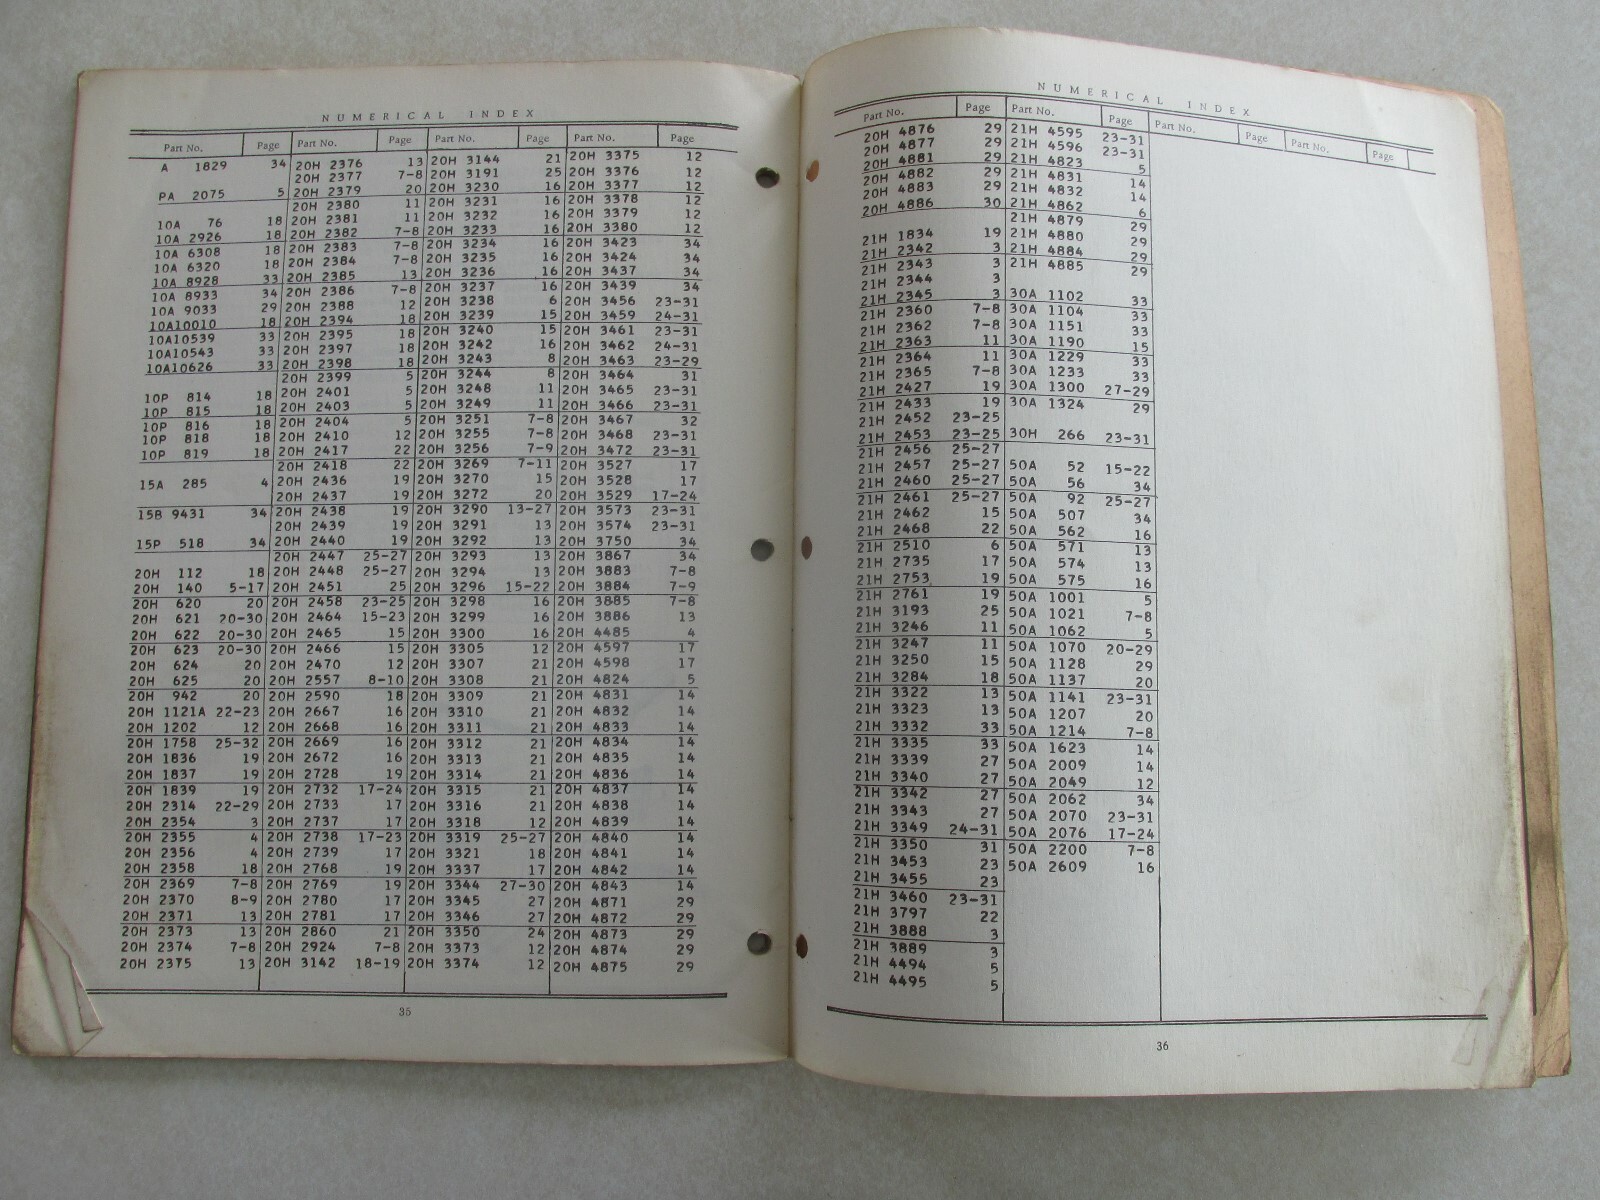 NUMERICAL INDEX
Part No. Page Part No. Page Part No. Page Part No. Page
A 1829 34
PA 2075 5
10A 76 18
10A 2926 18
10A 6308 18
10A 6320 18
10A 8928 33
10A 8933 34
10A 9033 29
10A10010 18
10A10539 33
10A10543 33
10A10626 33
10P 814 18
10P 815 18
10P 816 18
10P 818 18
10P 819 18
15A 285 4
15B 9431 34
15P 518 34
20H 112 18
20H 140 5-17
20H 620 20
20H 621 20-30
20H 622 20-30
20H 623 20-30
20H 624 20
20H 625 20
20H 942 20
20H 1121A 22-23
20H 1202 12
20H 1758 25-32
20H 1836 19
20H 1837 19
20H 1839 19
20H 2314 22-29
20H 2354 3
20H 2355 4
20H 2356 4
20H 2358 18
20H 2369 7-8
20H 2370 8-9
20H 2371 13
20H 2373 13
20H 2374 7-8
20H 2375 13
20H 2376 13
20H 2377 7-8
20H 2379 20
20H 2380 11
20H 2381 11
20H 2382 7-8
20H 2383 7-8
20H 2384 7-8
20H 2385 13
20H 2386 7-8
20H 2388 12
20H 2394 18
20H 2395 18
20H 2397 18
20H 2398 18
20H 2399 5
20H 2401 5
20H 2403 5
20H 2404 5
20H 2410 12
20H 2417 22
20H 2418 22
20H 2436 19
20H 2437 19
20H 2438 19
20H 2439 19
20H 2440 19
20H 2447 25-27
20H 2448 25-27
20H 2451 25
20H 2458 23-25
20H 2464 15-23
20H 2465 15
20H 2466 15
20H 2470 12
20H 2557 8-10
20H 2590 18
20H 2667 16
20H 2668 16
20H 2669 16
20H 2672 16
20H 2728 19
20H 2732 17-24
20H 2733 17
20H 2737 17
20H 2738 17-23
20H 2739 17
20H 2768 19
20H 2769 19
20H 2780 17
20H 2781 17
20H 2860 21
20H 2924 7-8
20H 3142 18-19
20H 3144 21
20H 3191 25
20H 3230 16
20H 3231 16
20H 3232 16
20H 3233 16
20H 3234 16
20H 3235 16
20H 3236 16
20H 3237 16
20H 3238 6
20H 3239 15
20H 3240 15
20H 3242 16
20H 3243 8
20H 3244 8
20H 3248 11
20H 3249 11
20H 3251 7-8
20H 3255 7-8
20H 3256 7-9
20H 3269 7-11
20H 3270 15
20H 3272 20
20H 3290 13-27
20H 3291 13
20H 3292 13
20H 3293 13
20H 3294 13
20H 3296 15-22
20H 3298 16
20H 3299 16
20H 3300 16
20H 3305 12
20H 3307 21
20H 3308 21
20H 3309 21
20H 3310 21
20H 3311 21
20H 3312 21
20H 3313 21
20H 3314 21
20H 3315 21
20H 3316 21
20H 3318 12
20H 3319 25-27
20H 3321 18
20H 3337 17
20H 3344 27-30
20H 3345 27
20H 3346 27
20H 3350 24
20H 3373 12
20H 3374 12
20H 3375 12
20H 3376 12
20H 3377 12
20H 3378 12
20H 3379 12
20H 3380 12
20H 3423 34
20H 3424 34
20H 3437 34
20H 3439 34
20H 3456 23-31
20H 3459 24-31
20H 3461 23-31
20H 3462 24-31
20H 3463 23-29
20H 3464 31
20H 3465 23-31
20H 3466 23-31
20H 3467 32
20H 3468 23-31
20H 3472 23-31
20H 3527 17
20H 3528 17
20H 3529 17-24
20H 3573 23-31
20H 3574 23-31
20H 3750 34
20H 3867 34
20H 3883 7-8
20H 3884 7-9
20H 3885 7-8
20H 3886 13
20H 4485 4
20H 4597 17
20H 4598 17
20H 4824 5
20H 4831 14
20H 4832 14
20H 4833 14
20H 4834 14
20H 4835 14
20H 4836 14
20H 4837 14
20H 4838 14
20H 4839 14
20H 4840 14
20H 4841 14
20H 4842 14
20H 4843 14
20H 4871 29
20H 4872 29
20H 4873 29
20H 4874 29
20H 4875 29
35
NUMERICAL INDEX
Part No. Page Part No. Page Part No. Page Part No. Page
20H 4876 29
20H 4877 29
20H 4881 29
20H 4882 29
20H 4883 29
20H 4886 30
21H 1834 19
21H 2342 3
21H 2343 3
21H 2344 3
21H 2345 3
21H 2360 7-8
21H 2362 7-8
21H 2363 11
21H 2364 11
21H 2365 7-8
21H 2427 19
21H 2433 19
21H 2452 23-25
21H 2453 23-25
21H 2456 25-27
21H 2457 25-27
21H 2460 25-27
21H 2461 25-27
21H 2462 15
21H 2468 22
21H 2510 6
21H 2735 17
21H 2753 19
21H 2761 19
21H 3193 25
21H 3246 11
21H 3247 11
21H 3250 15
21H 3284 18
21H 3322 13
21H 3323 13
21H 3332 33
21H 3335 33
21H 3339 27
21H 3340 27
21H 3342 27
21H 3343 27
21H 3349 24-31
21H 3350 31
21H 3453 23
21H 3455 23
21H 3460 23-31
21H 3797 22
21H 3888 3
21H 3889 3
21H 4494 5
21H 4495 5
21H 4595 23-31
21H 4596 23-31
21H 4823 5
21H 4831 14
21H 4832 14
21H 4862 6
21H 4879 29
21H 4880 29
21H 4884 29
21H 4885 29
30A 1102 33
30A 1104 33
30A 1151 33
30A 1190 15
30A 1229 33
30A 1233 33
30A 1300 27-29
30A 1324 29
30H 266 23-31
50A 52 15-22
50A 56 34
50A 92 25-27
50A 507 34
50A 562 16
50A 571 13
50A 574 13
50A 575 16
50A 1001 5
50A 1021 7-8
50A 1062 5
50A 1070 20-29
50A 1128 29
50A 1137 20
50A 1141 23-31
50A 1207 20
50A 1214 7-8
50A 1623 14
50A 2009 14
50A 2049 12
50A 2062 34
50A 2070 23-31
50A 2076 17-24
50A 2200 7-8
50A 2609 16
36